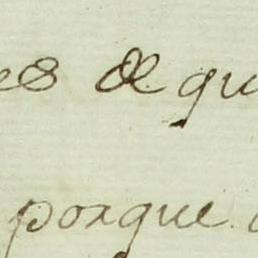 es de qu
porque